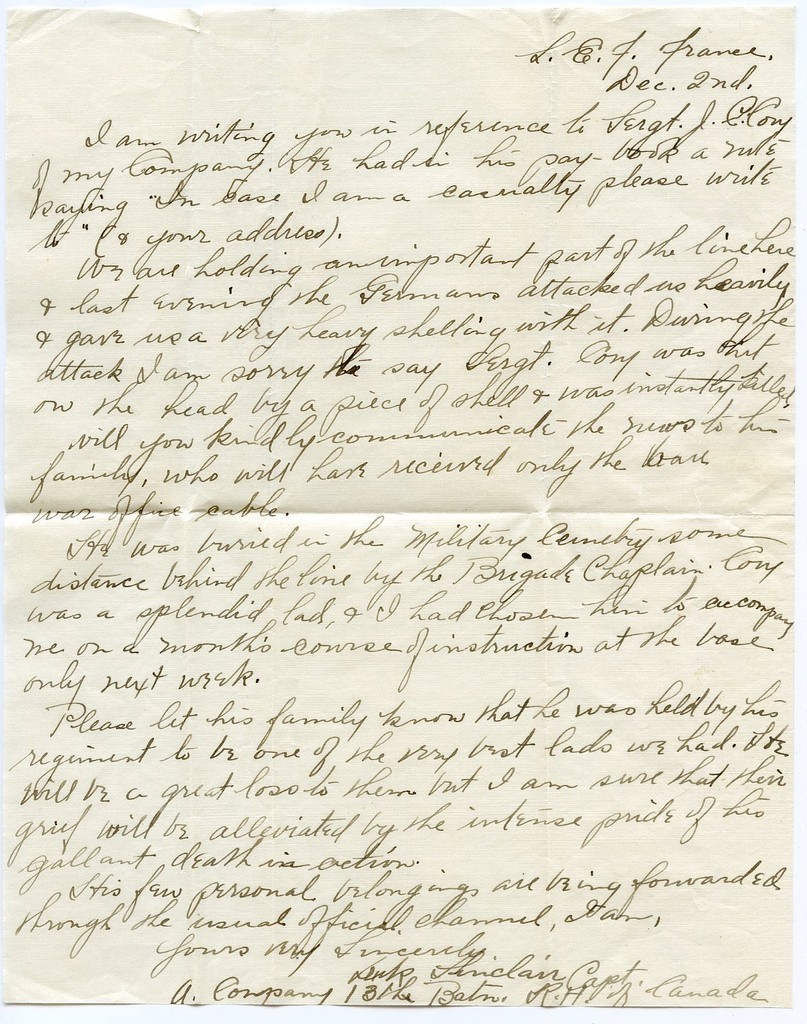 B. E. F. France.
Dec. 2nd.
I am writing you in reference to Sergt. J. C. Cory
of my Company. He had in his pay-book a note
saying "In case I am a casualty please write
to" (& your address).
We are holding an important part of the line here
& last evening the Germans attacked us heavily
& gave us a very heavy shelling with it. During the
attack I am sorry to say Sergt. Cory was hit
on the head by a piece of shell & was instantly killed
Will you kindly communicate the news to his
family, who will have received only the bare
war office cable.
He was buried in the Military Cemetry some
distance behind the line by the Brigade Chaplain. Cory
was a splendid lad, & I had chosen him to accompany
me on a month's course of instruction at the base
only next week.
Please let his family know that he was held by his
regiment to be one of the very best lads we had. He
will be a great loss to them but I am sure that their
grief will be alleviated by the intense pride of his
gallant death in action.
His few personal belongings are being forwarded
through the usual official channel, I am,
Yours very Sincerely
Sinclair Capt.
A. Company 13th Batn. R.H. of Canada